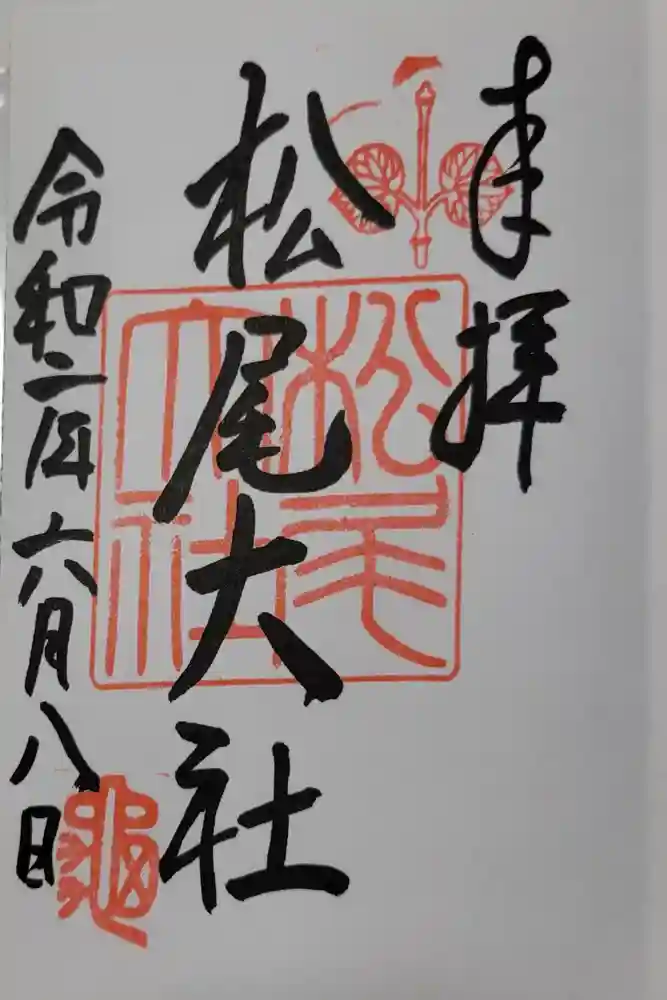 奉拝
松尾大社
松尾大社
令和二年六月八日
龜